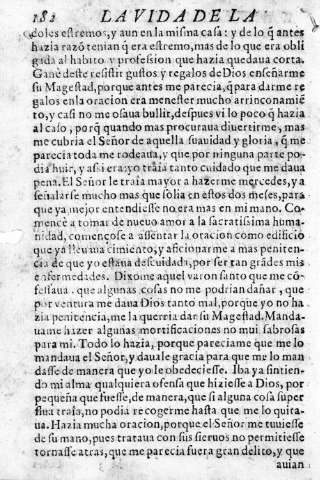 182 LA VIDA DE LA
doles estremos, y aun en la misma casa: y de lo q̃ antes
hazia razõ tenian q̃ era estremo, mas de lo que era obli
gada al habito y profession que hazia quedaua corta.
Ganè deste resistir gustos y regalos de Dios enseñarme
su Magestad, porque antes me parecia, q̃ para darme re
galos en la oracion era menester mucho arrinconamiẽ
to, y casi no me osaua bullir, despues vi lo poco q̃ hazia
al caso, porq̃ quando mas procuraua diuertirme, mas
me cubria el Señor de aquella suauidad y gloria, q̃ me
parecia toda me rodeaua, y que por ninguna parte po-
dia huir, y assi era: yo traìa tanto cuidado que me daua
pena. El Señor le traìa mayor a hazerme mercedes, y a
señalarse mucho mas que solia en estos dos meses, para
que ya mejor entendiesse no era mas en mi mano. Co-
mencè a tomar de nueuo amor a la sacratissima huma-
nidad, començose a assentar la oracion como edificio
que ya lleuaua cimiento, y aficionarme a mas peniten-
cia de que yo estaua descuidada, por ser tan grãdes mis
enfermedades. Dixome aquel varon santo que me cõ-
fessaua, que algunas cosas no me podrian dañar, que
por ventura me daua Dios tanto mal, porque yo no ha
zia penitencia, me la querria dar su Magestad. Manda-
uame hazer algunas mortificaciones no mui sabrosas
para mi. Todo lo hazia, porque pareciame que me lo
mandaua el Señor, y dauale gracia para que me lo man
dasse de manera que yo le obedeciesse. Iba ya sintien-
do mi alma qualquiera ofensa que hiziesse a Dios, por
pequeña que fuesse, de manera, que si alguna cosa super
flua traìa, no podia recogerme hasta que me lo quita-
ua. Hazia mucha oracion, porque el Señor me tuuiesse
de su mano, pues trataua con sus sieruos no permitiesse
tornasse atras, que me parecia fuera gran delito, y que
auian